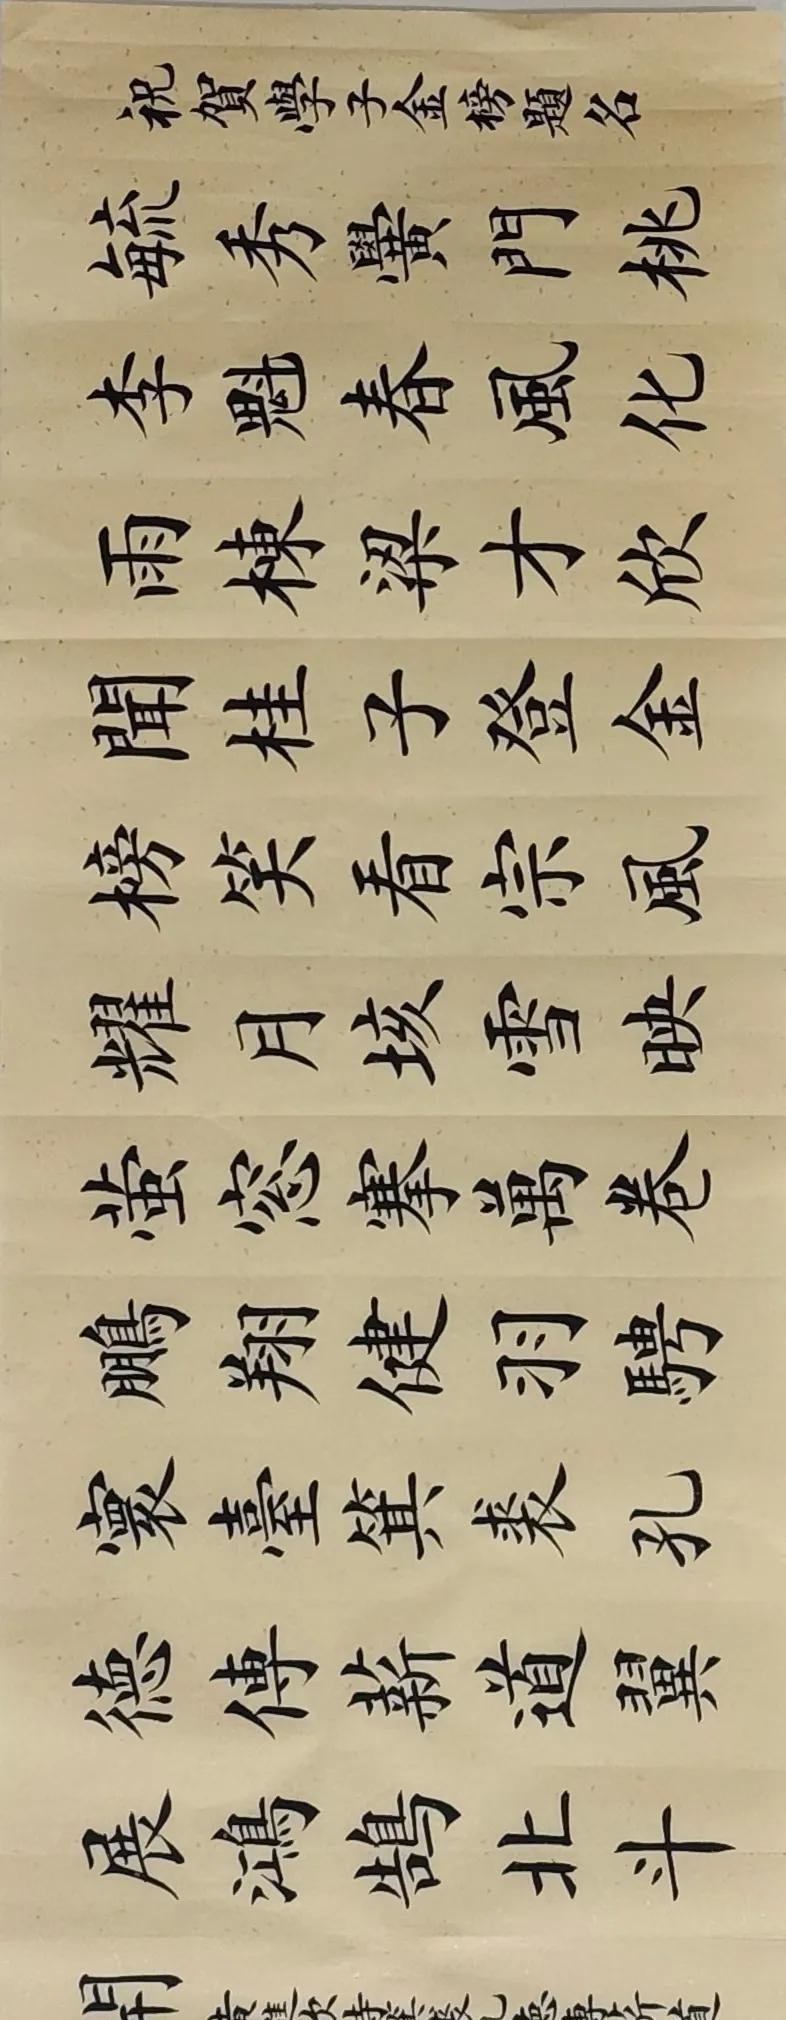 祝賀學子金榜題名
毓秀黌門桃
李魁春風化
雨棟梁才欣
聞桂子登金
榜笑看宗風
耀月垓雪映
萤窓搴萬卷
鵬翔健羽騁
寰臺箕裘孔
德傳薪道翼
展鴻鵠北斗
開